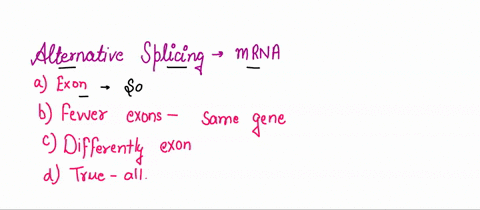 Alternative Splicing → mRNA
a) Exon → So
b) Fewer exons - Same gene
c) Differently exon
d) True - all.